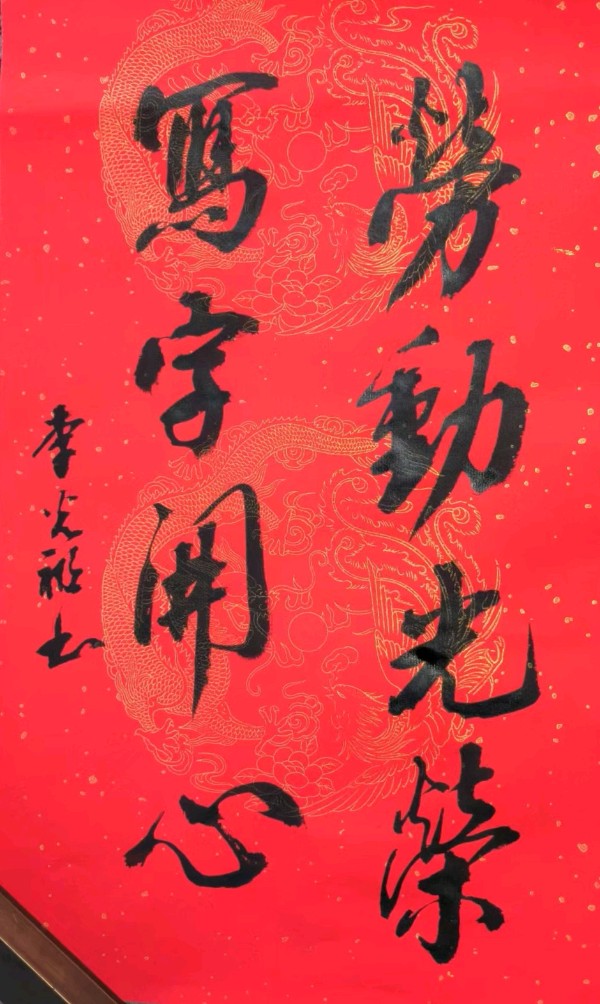 勞動光榮
寫字開心
李光祖书